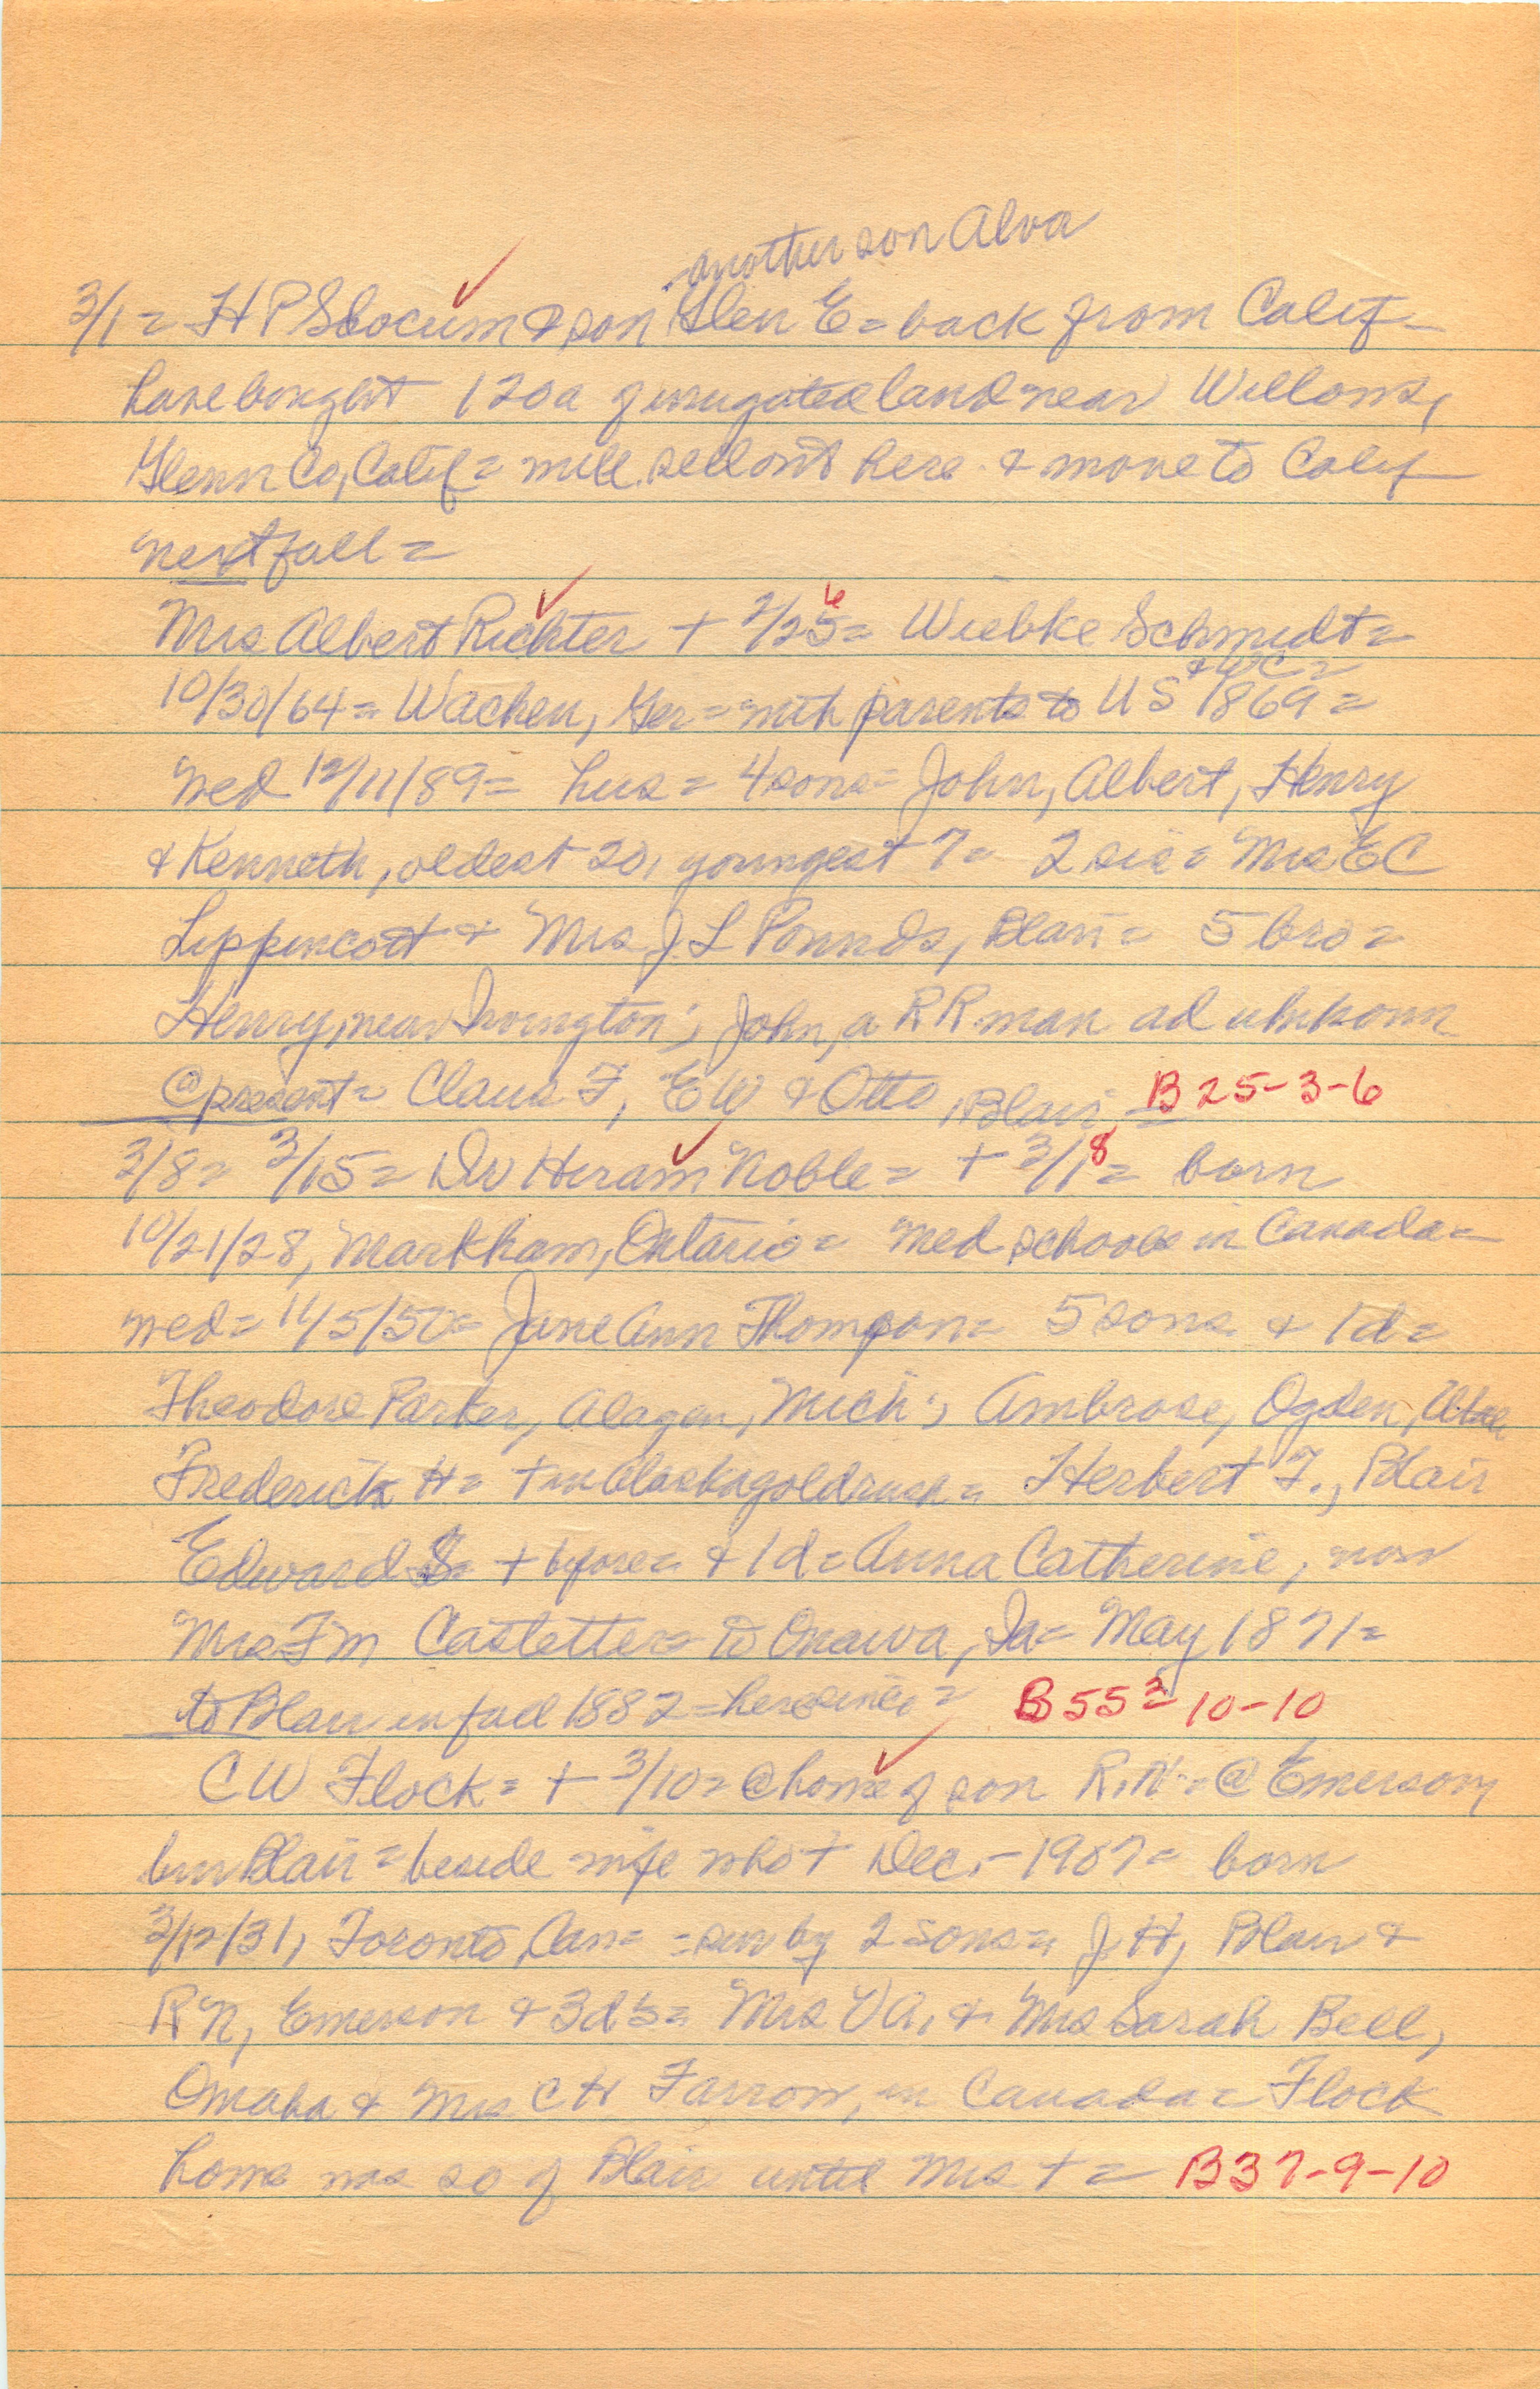 another son Alva
3/1 = H P Slocum & son Glen E = back from Calif -
have bought 120a of irrigated land near Willows,
Glenn Co, Calif = will sell out here & move to Calif
next fall =
Mrs Albert Richter + 2/25 6 = Wiebke Schmidt =
& WC =
10/30/64 = Wacken, Ger = with parents to US 1869 =
wed 12/11/89 = hus = 4 sons = John, Albert, Henry
& Kenneth, oldest 20, youngest 7 = 2 sis = Mrs E C
Lippincott & Mrs J L Pounds, Blair = 5 bro =
Henry, near Irvington; John, a RR man ad unknown
@ present = Claus F, E W & Otto, Blair = B 25-3-6
3/8 = 3/15 = Dr Hiram Noble = + 3/18 = born
10/21/28, Markham, Ontario = med schools in Canada =
wed = 11/5/50 = Jane Ann Thompson = 5 sons & 1 d =
Theodore Parker, Alagen, Mich; Ambrose, Ogden, Utah
Frederick H = + in Alaska gold rush = Herbert F., Blair
Edward S = + before = & 1 d = Anna Catherine, now
Mrs F M Castetter = to Onawa, Ia = May 1871 =
to Blair in fall 1882 = here since = B 55 2 10-10
C W Flock = + 3/10 = @ home of son R. N. = @ Emerson
bur Blair = beside wife who + Dec. - 1907 = born
3/12/31, Toronto, Can = = sur by 2 sons = J. H, Blair &
R N, Emerson & 3 d's = Mrs V A, & Mrs Sarah Bell,
Omaha & Mrs C H Farrow, in Canada = Flock
home was so of Blair until Mrs + = B 37-9-10